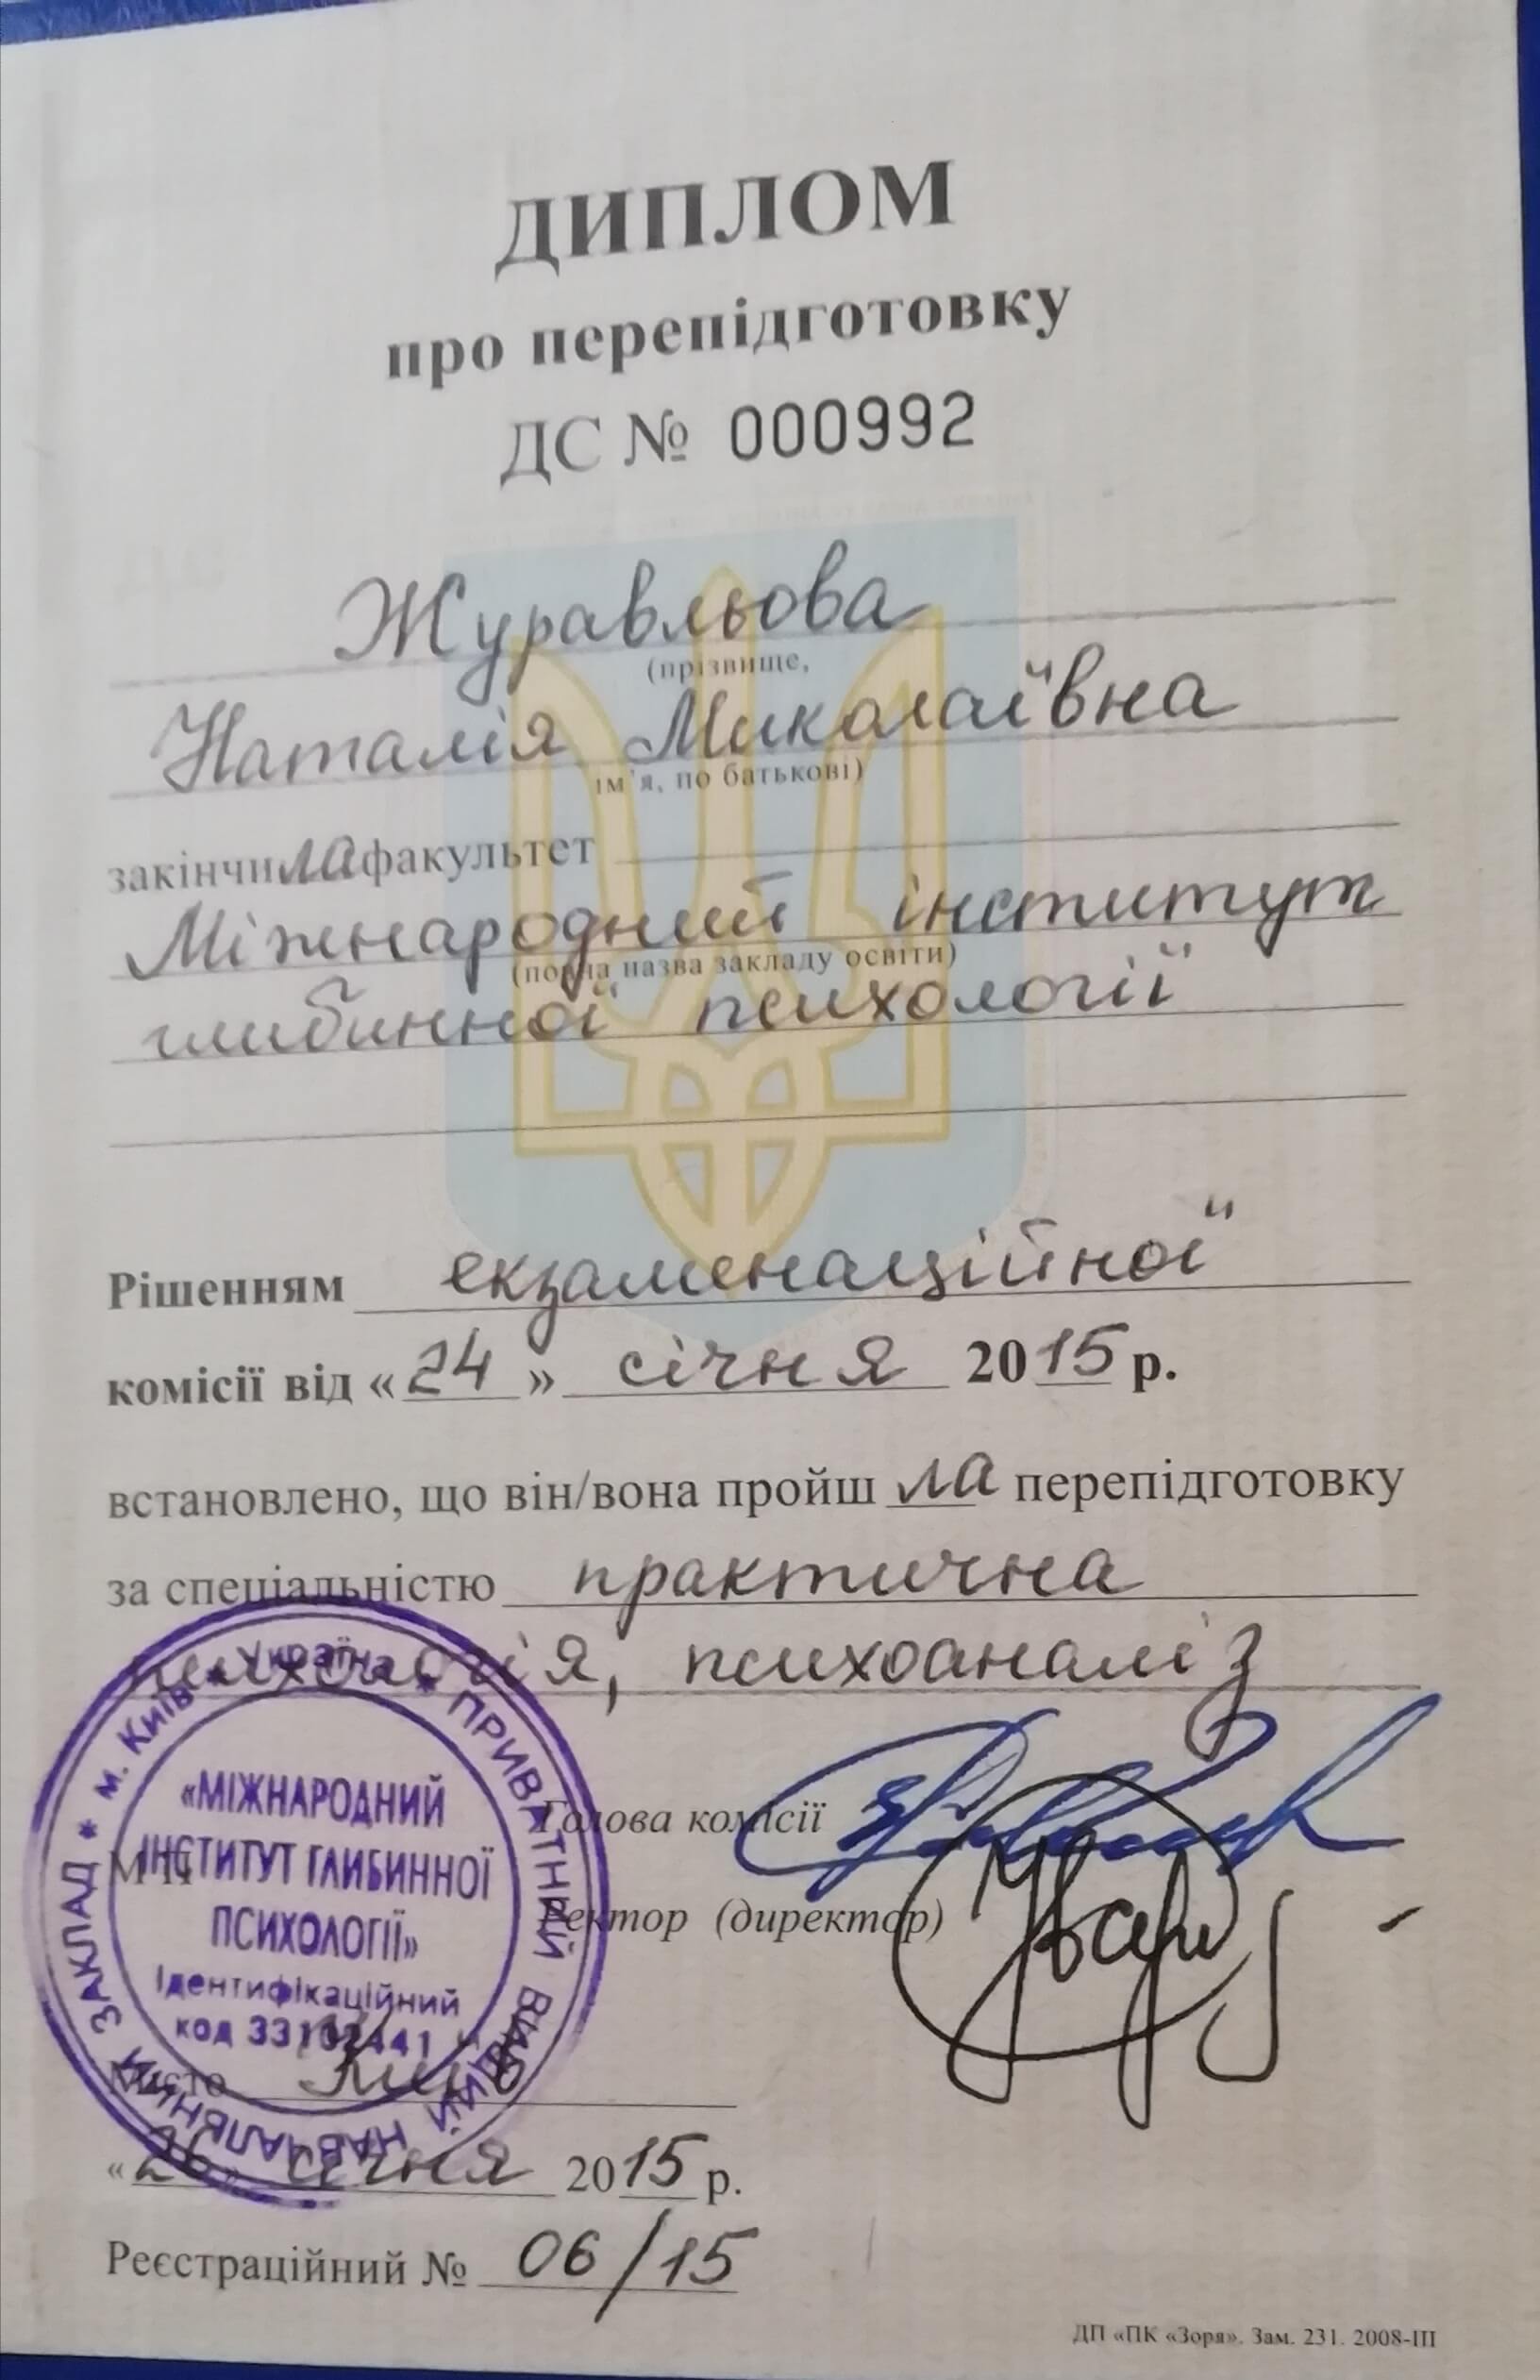 ДИПЛОМ
про перепідготовку
ДС № 000992
Журавльова
(прізвище,
Наталія Миколаївна
ім'я, по батькові)
закінчила факультет
Міжнародний інститут
(повна назва закладу освіти)
глибинної психології
Рішенням екзаменаційної
комісії від «24» січня 2015 р.
встановлено, що він/вона пройшла перепідготовку
за спеціальністю практична
психологія, психоаналіз
* м. Київ * Україна * ПРИВАТНИЙ ВИЩИЙ НАВЧАЛЬНИЙ ЗАКЛАД
«МІЖНАРОДНИЙ
ІНСТИТУТ ГЛИБИННОЇ
ПСИХОЛОГІЇ»
Ідентифікаційний
код
Голова комісії
МП
Ректор (директор)
Місто Київ
«26» січня 2015 р.
Реєстраційний № 06/15
ДП «ПК «Зоря». Зам. 231. 2008-III